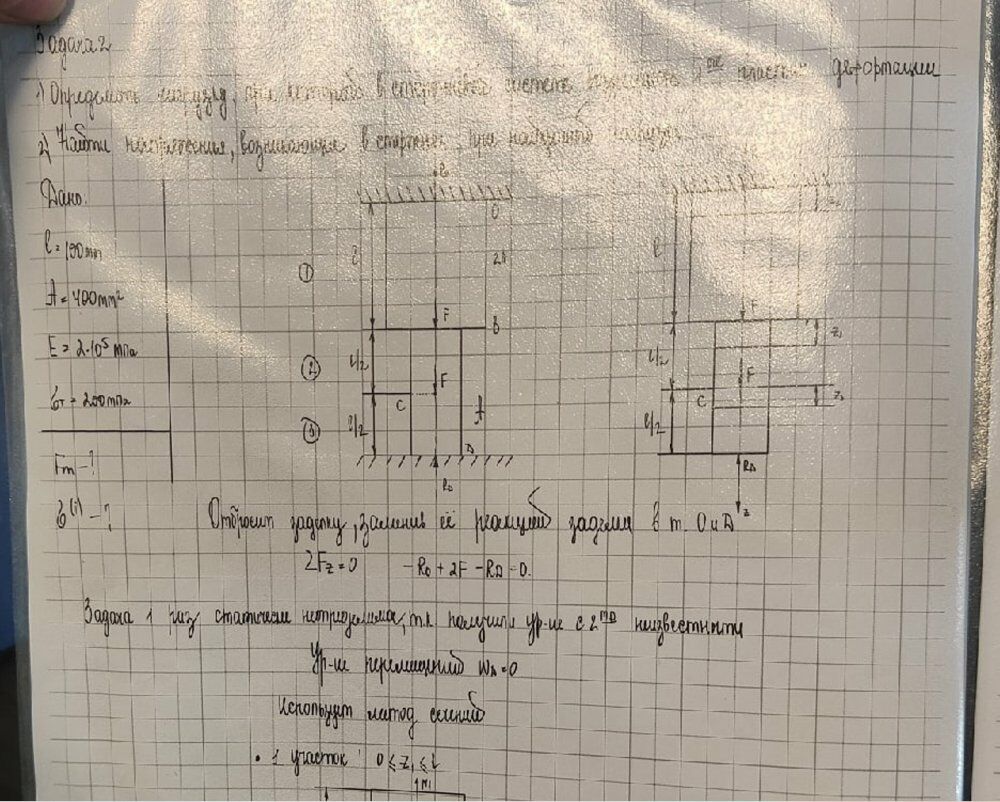 Задача 2
1) Определить нагрузку, при которой в стержневой системе пластич деформации
2) Найти напряжения, возникающие в стержнях, при найденной нагрузке
Дано:
l = 100mm
A = 400mm²
E = 2·10⁵ мпа
σт = 200мпа
Fт - ?
σ⁽ⁱ⁾ - ?
0
l
2A
①
F
B
l/2
②
F
C
A
l/2
③
D
R_D
l
F
z₁
l/2
F
C
z₂
l/2
R_D
z
Отбросим заделку, заменив её реакцией заделки в т. O и D
ΣFz=0 -R₀ + 2F - R_D = 0.
Задача 1 раз статически неопределима, т.к получили ур-ие с 2ᵐᵃ неизвестными
Ур-ие перемещений W_D = 0
Использует метод сечений
• 1 участок 0 ⩽ z₁ ⩽ l
N₁